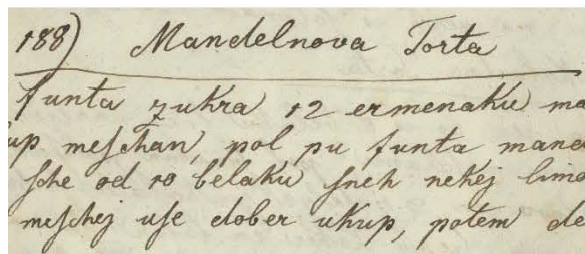 188) Mandelnova Torta
funta zukra 12 ermenaku ma
up meſchan, pol pu funta mande
ſche od 10 belaku ſneh nekej limo
meſchej uſe dober ukup, potem de